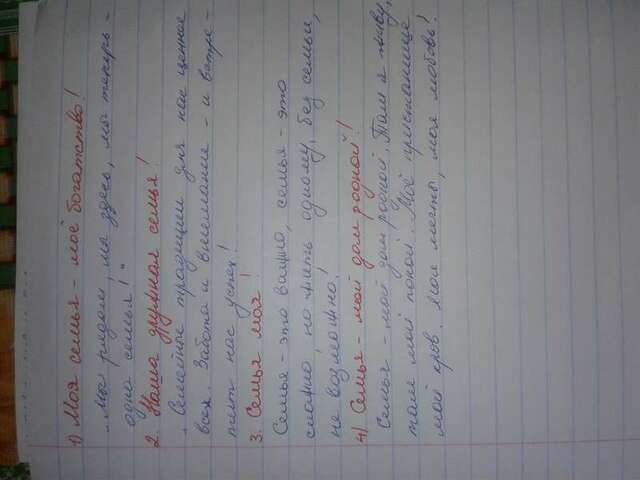 1) Моя семья - моё богатство!
„Мы рядом, мы здесь, мы теперь -
одна семья!"
2. Наша дружная семья!
„Семейные традиции для нас ценнее
всех. Забота и внимание - и встре-
тит нас успех!
3. Семья моя!
Семья - это важно, семья - это
сложно, но жить одному, без семьи,
не возможно!
4) Семья - мой дом родной!
Семья - мой дом родной. Там я живу,
там мой покой. Моё пристанище
мой кров. Мои мечты, моя любовь!